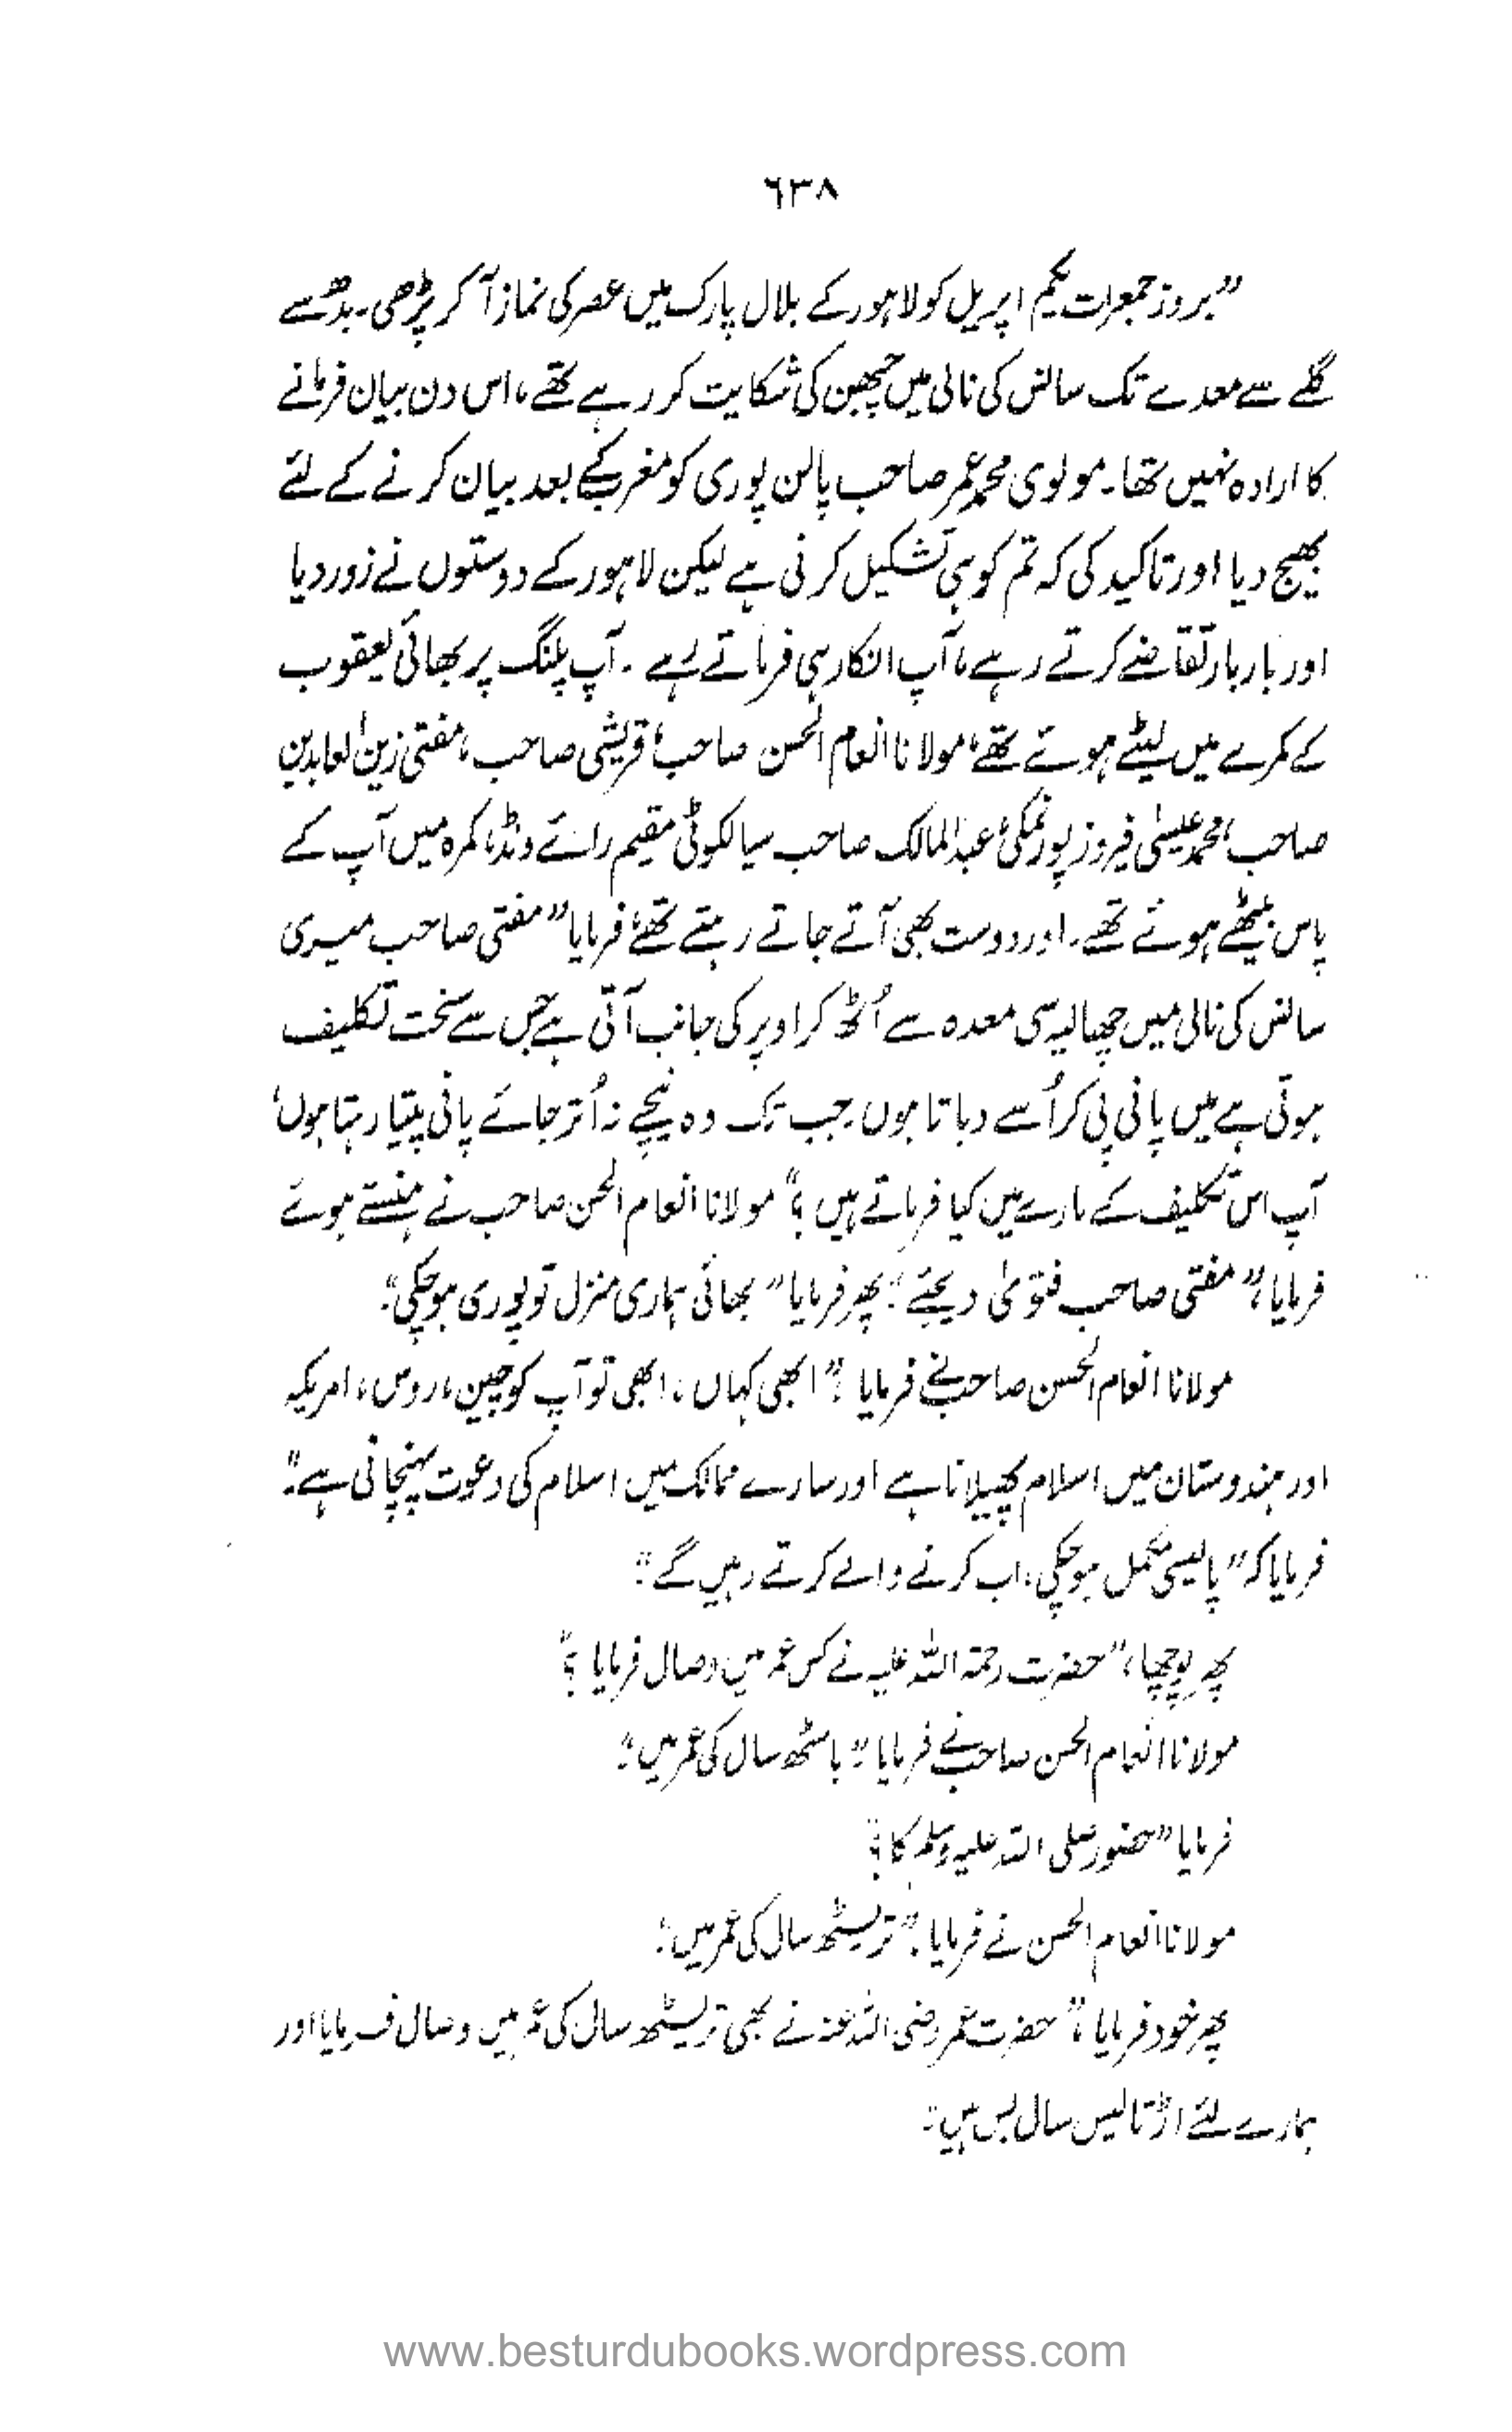 ٦٣٨
”بروز جمعرات یکم اپریل کو لاہور کے بلال پارک میں عصر کی نماز آ کر پڑھی۔ بدھ سے
گلے سے معدے تک سانس کی نالی میں چبھن کی شکایت کر رہے تھے، اس دن بیان فرمانے
کا ارادہ نہیں تھا۔ مولوی محمد عمر صاحب پالن پوری کو مغرب کے بعد بیان کرنے کے لئے
بھیج دیا اور تاکید کی کہ تم کو ہی تشکیل کرنی ہے لیکن لاہور کے دوستوں نے زور دیا
اور بار بار تقاضے کرتے رہے، آپ انکار ہی فرماتے رہے ۔ آپ پلنگ پر بھائی یعقوب
کے کمرے میں لیٹے ہوئے تھے، مولانا انعام الحسن صاحب، قریشی صاحب، مفتی زین العابدین
صاحب، محمد عیسیٰ فیروز پور نمکی، عبدالمالک صاحب سیالکوٹی مقیم رائے ونڈ، کمرہ میں آپ کے
پاس بیٹھے ہوئے تھے۔ اور دوست بھی آتے جاتے رہتے تھے، فرمایا ”مفتی صاحب میری
سانس کی نالی میں چھالیہ سی معدہ سے اُٹھ کر اوپر کی جانب آتی ہے جس سے سخت تکلیف
ہوتی ہے میں پانی پی کر اُسے دباتا ہوں جب تک وہ نیچے نہ اُتر جائے پانی پیتا رہتا ہوں،
آپ اس تکلیف کے بارے میں کیا فرماتے ہیں ؟“ مولانا انعام الحسن صاحب نے ہنستے ہوئے
فرمایا، ”مفتی صاحب فتویٰ دیجئے“ پھر فرمایا ”بھائی ہماری منزل تو پوری ہو چکی“
مولانا انعام الحسن صاحب نے فرمایا ”ابھی کہاں، ابھی تو آپ کو چین، روس، امریکہ
اور ہندوستان میں اسلام پھیلانا ہے اور سارے ممالک میں اسلام کی دعوت پہنچانی ہے“
فرمایا کہ ”پالیسی مکمل ہو چکی، اب کرنے والے کرتے رہیں گے“
پھر پوچھا، ”حضرت رحمۃ اللہ علیہ نے کس عمر میں وصال فرمایا ؟“
مولانا انعام الحسن صاحب نے فرمایا ”باسٹھ سال کی عمر میں“
فرمایا ”حضور صلی اللہ علیہ وسلم کا ؟“
مولانا انعام الحسن نے فرمایا ”تریسٹھ سال کی عمر میں“
پھر خود فرمایا، ”حضرت عمر رضی اللہ عنہ نے بھی تریسٹھ سال کی عمر میں وصال فرمایا اور
ہمارے لئے اڑتالیس سال بس ہیں“
www.besturdubooks.wordpress.com